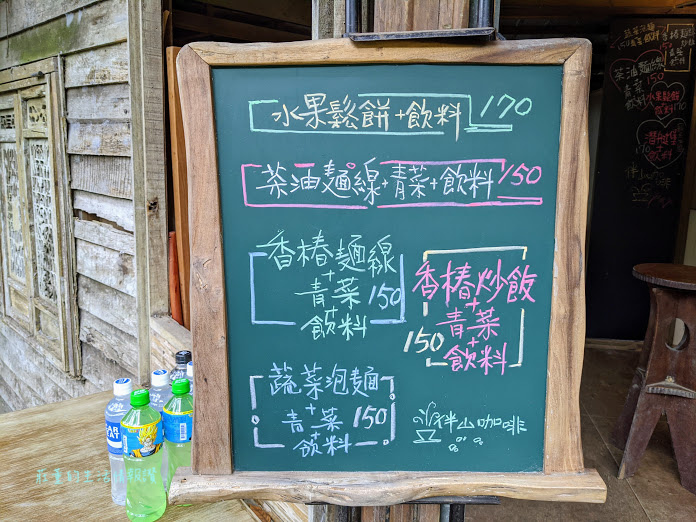 水果鬆餅+飲料 170
茶油麵線+青菜+飲料 150
香椿麵線
+
青菜 150
+
飲料
香椿炒飯
+
青菜
+
150 飲料
蔬菜泡麵
+
青菜 150
+
飲料
伴山咖啡
茶油麵線
150
青菜
飲料
水果鬆餅
飲料
潛艇堡
飲料